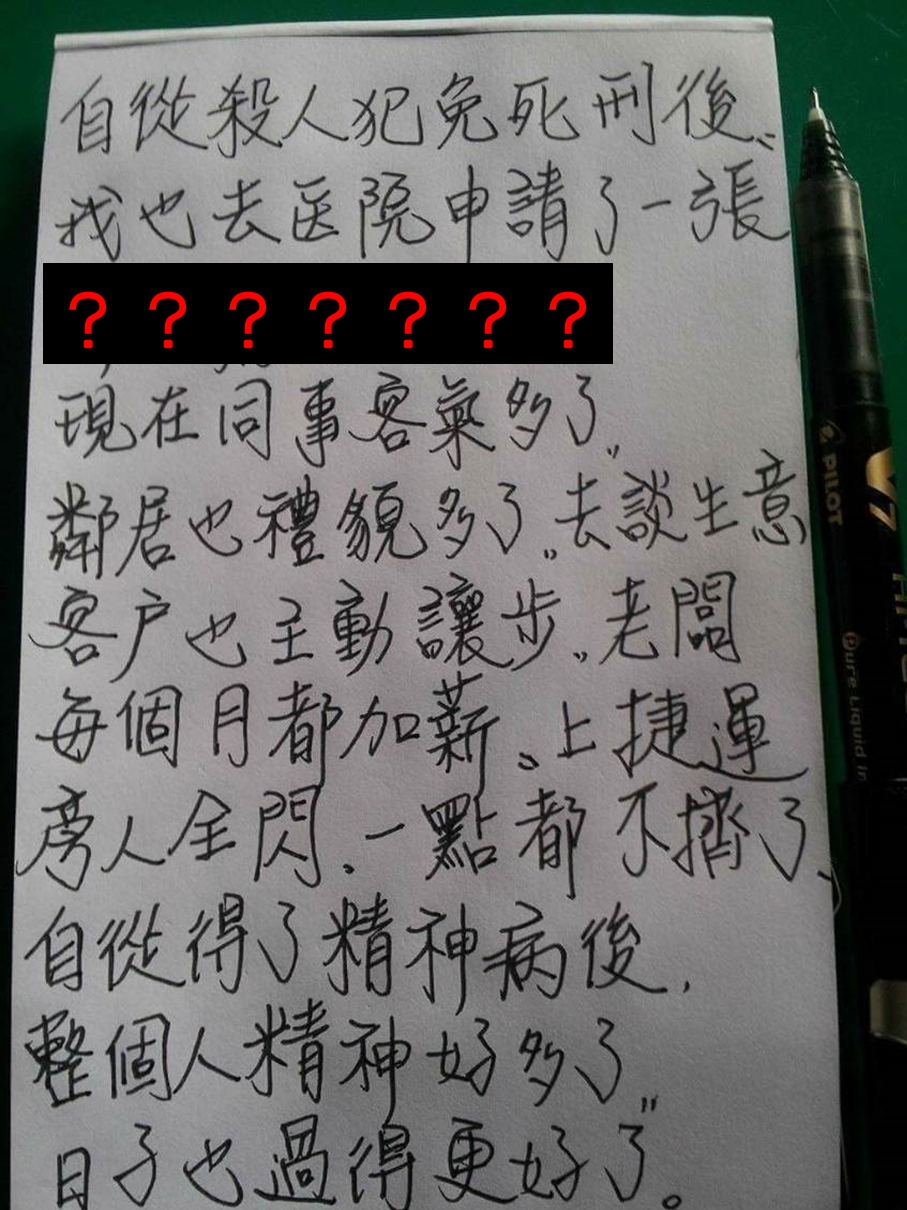 自從殺人犯免死刑後、
我也去医院申請了一張
???????
現在同事客氣多了。
鄰居也禮貌多了。去談生意
客户也主動讓步。老闆
每個月都加薪、上捷運
旁人全閃、一點都不擠了、
自從得了精神病後,
整個人精神好多了"
日子也過得更好了。
PILOT
V7
Pure Liquid In